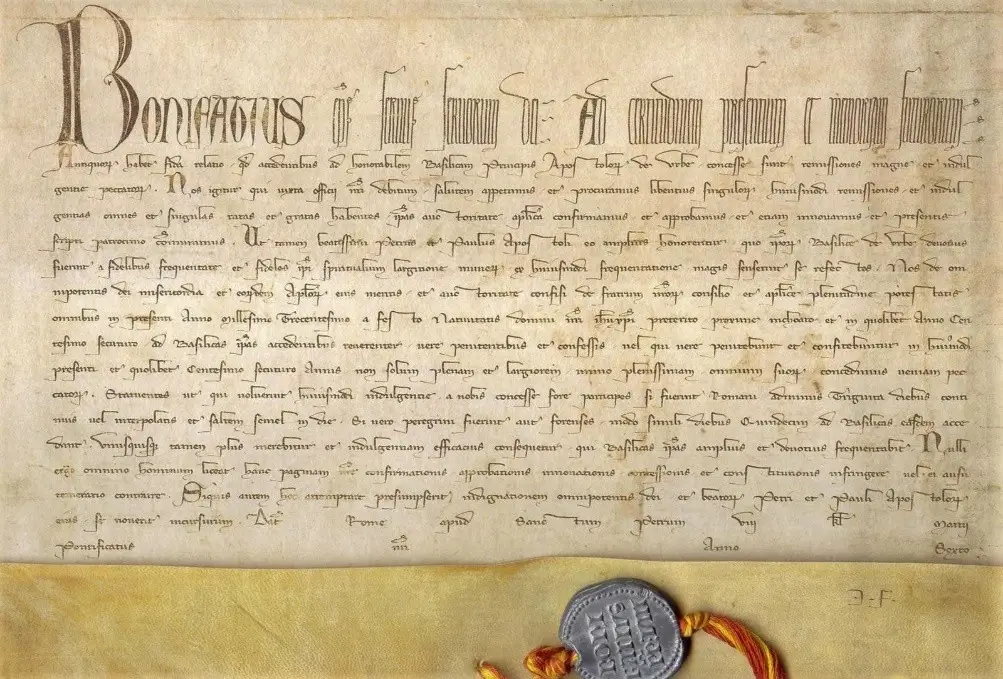 Bonifatius ep̄s servus servorum dei. Ad certitudinem presentium et memoriam futurorum
Antiquorꝝ habet fida relatio qđ accedentibus ad honorabilem Basilicam Principis Apostolorꝝ de Urbe concesse sunt remissiones magne et indul
gentie peccatorꝝ. Nos igitur qui iuxta officii nr̄i debitum salutem appetimus et procuramus libentius singulorꝝ huiusmodi remissiones et indul
gentias omnes et singulas ratas et gratas habentes ip̄as auctoritate aplica confirmamus et approbamus et etiam innovamus et presentis
scripti patrocinio com̄unimus. Ut tamen beatissimi Petrus et Paulus Apostoli eo amplius honorentur quo ip̄orꝝ Basilice de Urbe devotius
fuerint a fidelibus frequentate et fideles ip̄i spiritualium largitione munerꝝ ex huiusmodi frequentatione magis senserint se refectos. Nos de om
nipotentis dei misericordia et eorꝝdem Aplorꝝ eius meritis et auctoritate confisi de fratrum nr̄orꝝ consilio et aplice plenitudine potestatis
omnibus in presenti Anno Millesimo Trecentesimo a festo Nativitatis domini nr̄i ih̄u xp̄i preterito proxime inchoato et in quolibet Anno Cen
tesimo secuturo ad Basilicas ip̄as accedentibus reverenter vere penitentibus et confessis vel qui vere penitebunt et confitebuntur in hui9modi
presenti et quolibet Centesimo secuturo Annis non solum plenam et largiorem immo plenissimam omnium suorꝝ concedimus veniam pec
catorꝝ. Statuentes ut qui voluerint huiusmodi indulgentie a nobis concesse fore participes si fuerint Romani adminus Triginta diebus conti
nuis vel interpolatis et saltem semel in die. Si vero peregrini fuerint aut forenses modo simili diebus Quindecim ad Basilicas easdem acce
dant. Unusquisqꝫ tamen plus merebitur et indulgentiam efficacius consequetur qui Basilicas ip̄as amplius et devotius frequentabit. Nulli
ergo omnino hominum liceat hanc paginam nr̄e confirmationis approbationis innovationis concessionis et constitutionis infringere vel ei ausu
temerario contraire. Siquis autem hoc attemptare presumpserit indignationem omnipotentis dei et beatorꝝ Petri et Pauli Apostolorꝝ
eius se noverit incursurum. Dat̄ Rome apud Sanctum Petrum viii kl̄ Martii
Pontificatus nr̄i Anno Sexto